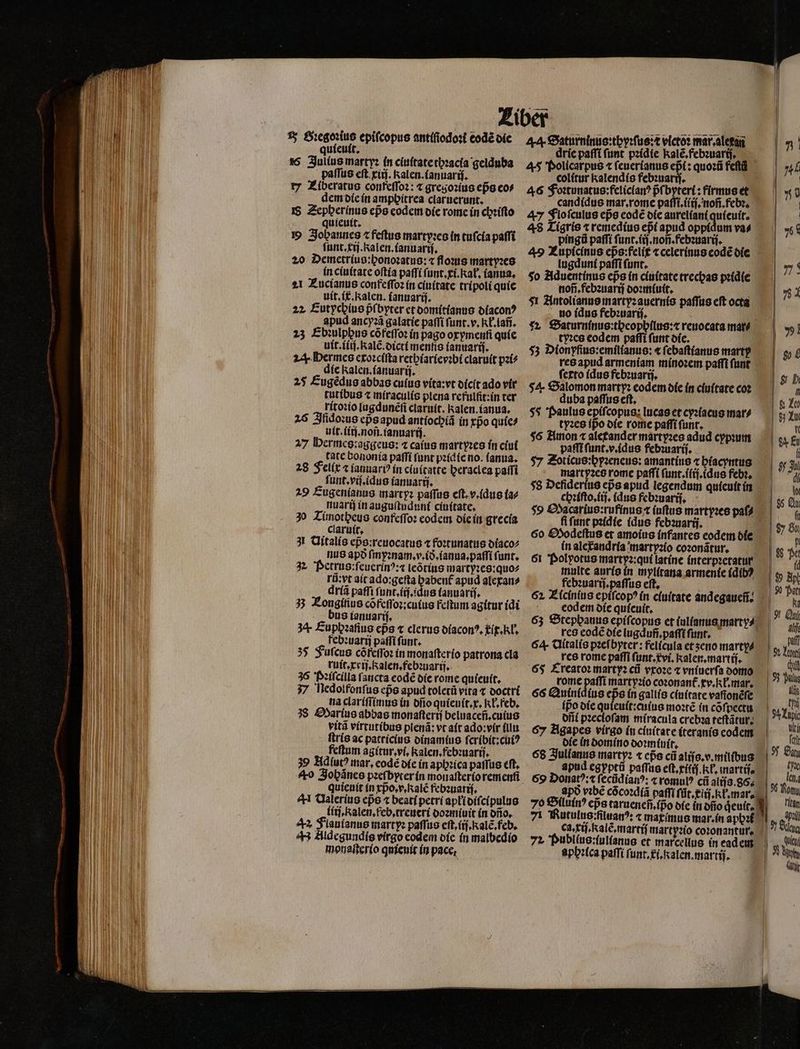 Liber
15 Gregorius episcopus antisiodori eodē die
quieuit.
16 Julius martyr in ciuitate thracia gelduba
passus est.xij. kalen.ianuarij.
17 Liberatus confessor: ⁊ gregorius ep̄s eo⸗
dem die in amphitrea claruerunt.
18 Zepherinus ep̄s eodem die rome in christo
quieuit.
19 Johannes ⁊ festus martyres in tuscia passi
sunt.xij.kalen.ianuarij.
20 Demetrius:honoratus: ⁊ florus martyres
in ciuitate ostia passi sunt.xi.kal. ianua.
21 Lucianus confessor in ciuitate tripoli quie
uit.ix.kalen. ianuarij.
22 Eutychius p̄sbyter et domitianus diacon⁹
apud ancyrā galatie passi sunt.v.kl̄.iañ.
23 Ebrulphus cōfessor in pago oxymensi quie
uit.iiij.kalē.dicti mensis ianuarij.
24 Hermes exorcista rethiarie vrbi claruit pri⸗
die kalen.ianuarij.
25 Eugēdus abbas cuius vita:vt dicit ado vir
tutibus ⁊ miraculis plena refulsit:in ter
ritorio lugdunēsi claruit. kalen.ianua.
26 Isidorus ep̄s apud antiochiā in xp̄o quie⸗
uit.iiij.noñ.ianuarij.
27 Hermes:aggeus: ⁊ caius martyres in ciui
tate bononia passi sunt pridie no. ianua.
28 Felix ⁊ ianuari⁹ in ciuitatte heraclea passi
sunt.vij.idus ianuarij.
29 Eugenianus martyr passus est.v.idus ia⸗
nuarij in augustuduni ciuitate.
30 Timotheus confessor eodem die in grecia
claruit.
31 Uitalis ep̄s:reuocatus ⁊ fortunatus diaco⸗
nus apd̄ smyrnam.v.id̄.ianua.passi sunt.
32 Petrus:seuerin⁹:⁊ leōtius martyres:quo⸗
rū:vt ait ado:gesta habent̄ apud alexan⸗
driā passi sunt.iij.idus ianuarij.
33 Longinus cōfessor:cuius festum agitur idi
bus ianuarij.
34 Euphrasius ep̄s ⁊ clerus diacon⁹. xix.kl̄.
februarij passi sunt.
35 Fuscus cōfessor in monasterio patrona cla
ruit.xvij.kalen.februarij.
36 Priscilla sancta eodē die rome quieuit.
37 Nedolfonsus ep̄s apud toletū vita ⁊ doctri
na clarissimus in dn̄o quieuit.x. kl̄.feb.
38 Marius abbas monasterij beluaceñ.cuius
vitā virtutibus plenā: vt ait ado:vir illu
stris ac patricius dinamius scribit:cui⁹
festum agitur.vi. kalen.februarij.
39 Adiut⁹ mar. eodē die in aphrica passus est.
40 Johānes presbyter in monasterio remensi
quieuit in xp̄o.v.kalē februarij.
41 Ualerius ep̄s ⁊ beati petri apl̄i discipulus
iiij.kalen.feb.treueri dormiuit in dn̄o.
42 Flauianus martyr passus est.iij.kalē.feb.
43 Aldegundis virgo eodem die in malbodio
monasterio quieuit in pace.
44 Saturninus:thyrsus:⁊ victor mar.alexan
drie passi sunt pridie kalē.februarij.
45 Policarpus ⁊ seuerianus ep̄i: quorū festū
colitur kalendis februarij.
46 Fortunatus:felician⁹ p̄sbyteri: firmus et
candidus mar.rome passi.iiij.noñ.febr.
47 Flosculus ep̄s eodē die aureliani quieuit.
48 Tigris ⁊ remedius ep̄i apud oppidum va⸗
pingū passi sunt.iij.noñ.februarij.
49 Lupicinus ep̄s:felix ⁊ celerinus eodē die
lugduni passi sunt.
50 Aduentinus ep̄s in ciuitate trechas pridie
noñ.februarij dormiuit.
51 Antolianus martyr auernis passus est octa
uo idus februarij.
52 Saturninus:theophilus:⁊ reuocata mar⸗
tyres eodem passi sunt die.
53 Dionysius:emilianus: ⁊ sebastianus marty
res apud armeniam minorem passi sunt
sexto idus februarij.
54 Salomon martyr eodem die in ciuitate cor
duba passus est.
55 Paulus episcopus: lucas et cyriacus mar⸗
tyres ip̄o die rome passi sunt.
56 Amon ⁊ alexander martyres adud cyprum
passi sunt.v.idus februarij.
57 Zoticus:hyreneus: amantius ⁊ hiacyntus
martyres rome passi sunt.iiij.idus febr.
58 Desiderius ep̄s apud legendum quieuit in
christo.iij. idus februarij.
59 Macarius:rufinus ⁊ iustus martyres pas⸗
si sunt pridie idus februarij.
60 Modestus et amoius infantes eodem die
in alexandria martyrio coronātur.
61 Polyotus martyr:qui latine interpretatur
multe auris in mylitana armenie idib⁹
februarij.passus est.
62 Licinius episcop⁹ in ciuitate andegaueñ.
eodem die quieuit.
63 Stephanus episcopus et iulianus marty⸗
res eodē die lugduñ.passi sunt.
64 Uitalis presbyter: felicula et zeno marty⸗
res rome passi sunt.xvi. kalen.martij.
65 Creator martyr cū vxore ⁊ vniuersa domo
rome passi martyrio coronant̄.xv.kl̄.mar.
66 Quinidius ep̄s in gallis ciuitate vasionēse
ip̄o die quieuit:cuius mortē in cōspectu
dn̄i preciosam miracula crebra testātur.
67 Agapes virgo in ciuitate iteranis eodem
die in domino dormiuit.
68 Julianus martyr ⁊ ep̄s cū alijs.v.milibus
apud egyptū passus est.xiiij.kl̄. martij.
69 Donat⁹:⁊ secūdian⁹: ⁊ romul⁹ cū alijs.86.
apd̄ vrbē cōcordiā passi sūt.xiij.kl̄.mar.
70 Siluin⁹ ep̄s tarueneñ.ip̄o die in dn̄o q̄euit.
71 Rutulus:siluan⁹: ⁊ maximus mar.in aphri
ca.xij.kalē.martij martyrio coronantur.
72 Publius:iulianus et marcellus in eadem
aphrica passi sunt.xi.kalen.martij.